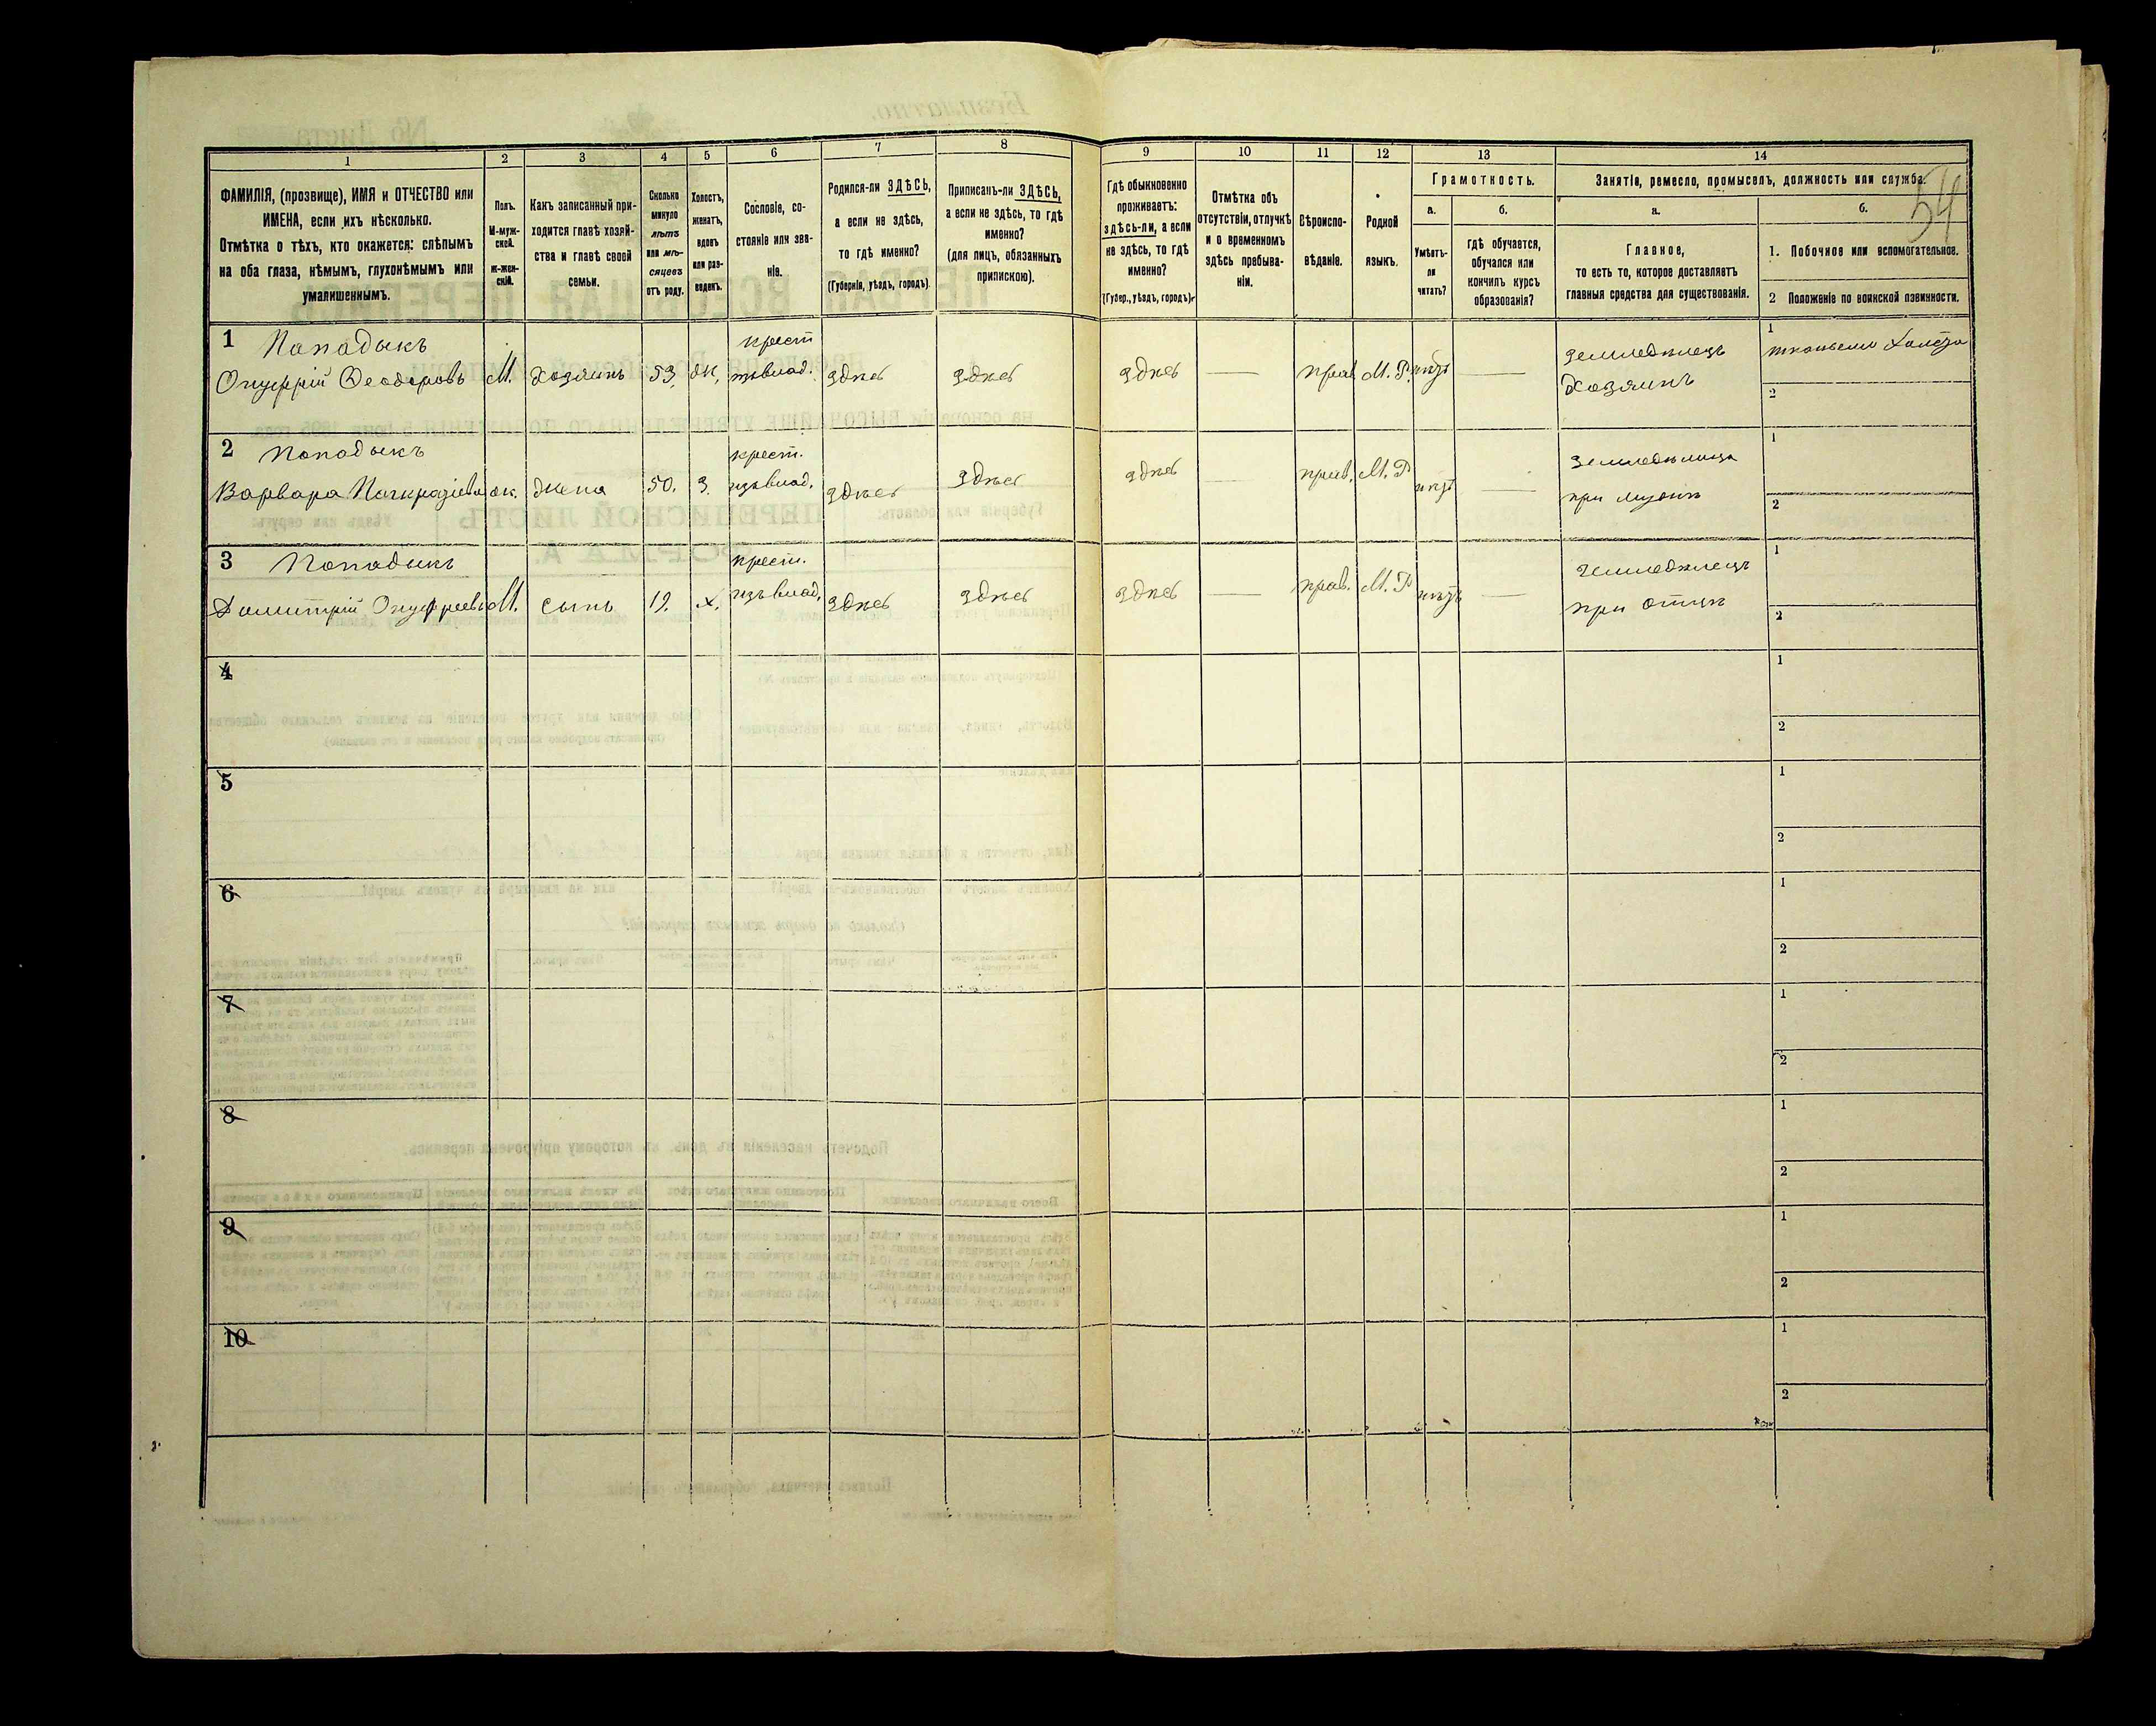 54
1 2 3 4 5 6 7 8 9 10 11 12 13 14
ФАМИЛІЯ, (прозвище), ИМЯ и ОТЧЕСТВО или
ИМЕНА, если ихъ нѣсколько.
Отмѣтка о тѣхъ, кто окажется: слѣпымъ
на оба глаза, нѣмымъ, глухонѣмымъ или
умалишеннымъ.
Полъ.
М-муж-
ской.
ж-жен-
скій.
Какъ записанный при-
ходится главѣ хозяй-
ства и главѣ своей
семьи.
Сколько
минуло
лѣтъ
или мѣ-
сяцевъ
отъ роду.
Холостъ,
женатъ,
вдовъ
или раз-
веденъ.
Сословіе, со-
стояніе или зва-
ніе.
Родился-ли ЗДѢСЬ,
а если не здѣсь,
то гдѣ именно?
(Губернія, уѣздъ, городъ).
Приписанъ-ли ЗДѢСЬ,
а если не здѣсь, то гдѣ
именно?
(для лицъ, обязанныхъ
припискою).
Гдѣ обыкновенно
проживаетъ:
здѣсь-ли, а если
не здѣсь, то гдѣ
именно?
(Губер., уѣздъ, городъ).
Отмѣтка объ
отсутствіи, отлучкѣ
и о временномъ
здѣсь пребыва-
ніи.
Вѣроиспо-
вѣданіе.
Родной
языкъ.
Грамотность.
а.
Умѣетъ-
ли
читать?
б.
гдѣ обучается,
обучался или
кончилъ курсъ
образованія?
Занятіе, ремесло, промыселъ, должность или служба.
а.
Главное,
то есть то, которое доставляетъ
главныя средства для существованія.
б.
1. Побочное или вспомогательное.
2 Положеніе по воинской повинности.
1 Пападыкъ крест земледѣлецъ 1
Онуфрій Феодоровъ М. Хозяинъ 53, ж, здѣсь здѣсь здѣсь — прав М. Р. нѣтъ — Хозяинъ 2
2 Попадыкъ крест. Земледѣлица 1
Варвара ж. жена 50. З. изъ влад. здѣсь здѣсь здѣсь прав. М. Р нѣтъ — при мужѣ 2
3 Попадыкъ крест. Земледѣлецъ 1
Димитрій Онуфріевъ М. сынъ 19. х. изъ влад. здѣсь здѣсь здѣсь — прав. М. Р нѣтъ — при отцѣ 2
4 1
2
5 1
2
6 1
2
7 1
2
8 1
2
9 1
2
10 1
2